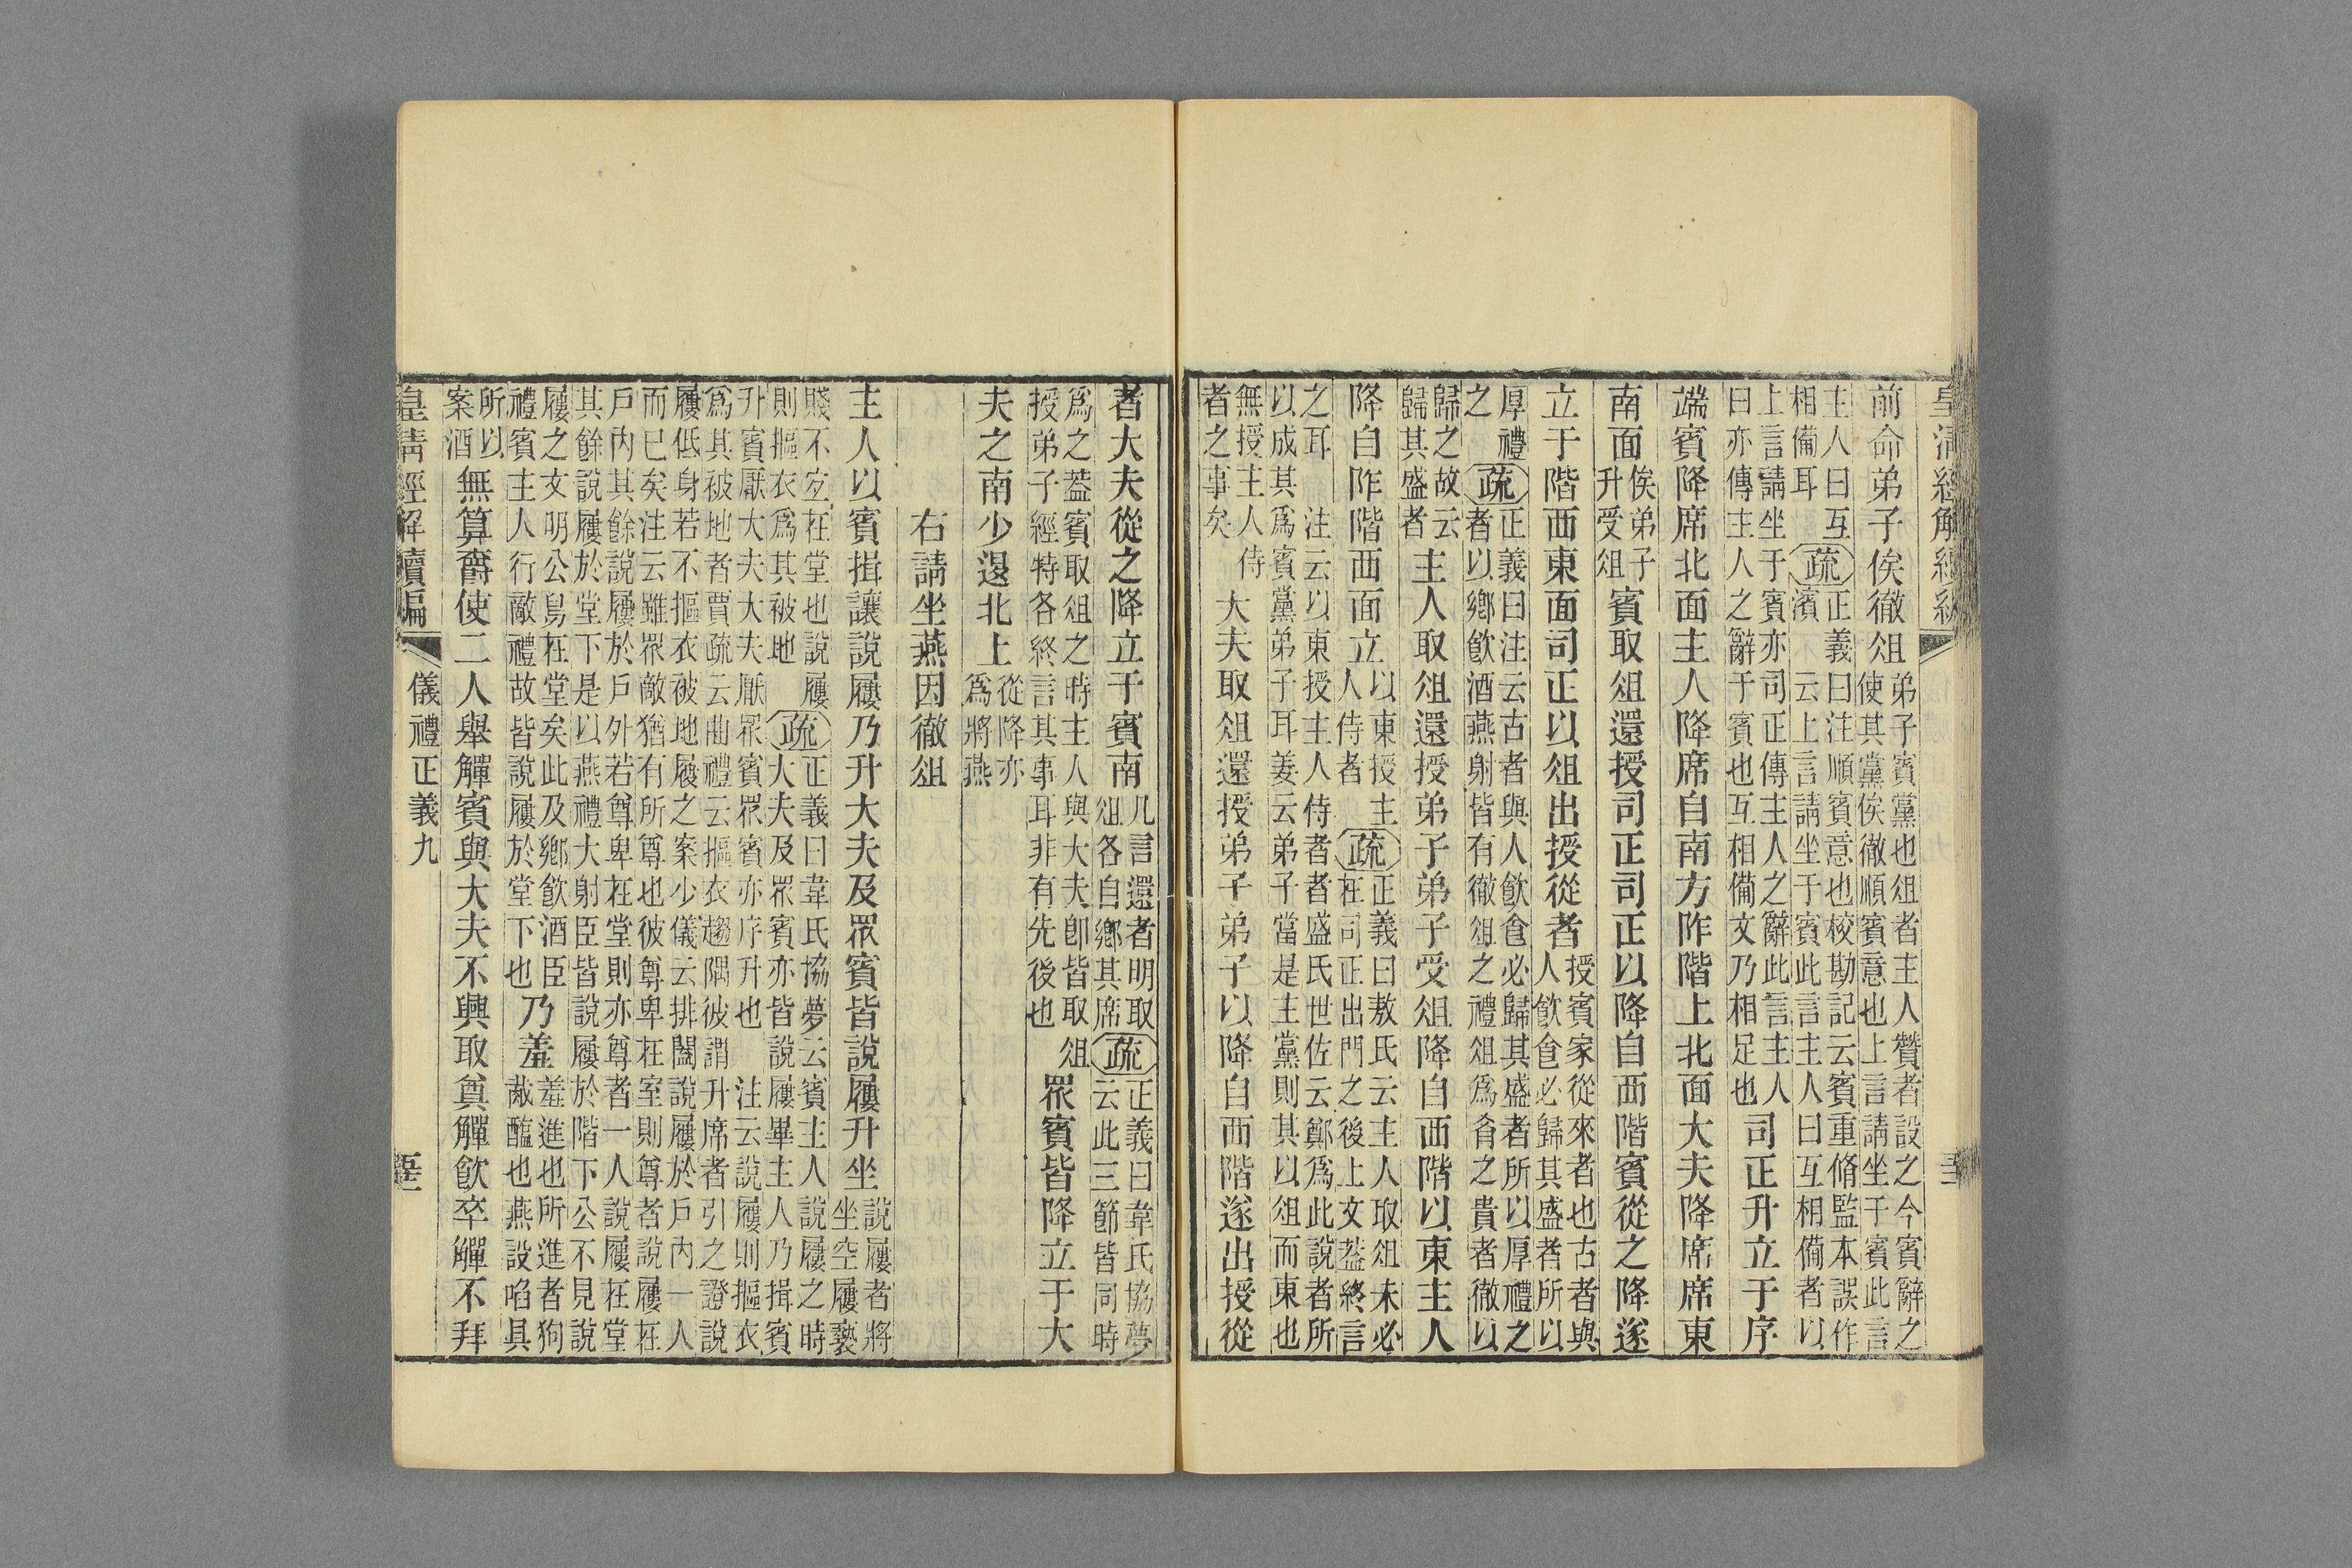 皇清經解續編
前命弟子俟徹俎弟子賓黨也俎者主人贊者設之今賓辭之使其黨俟徹順賓意也上言請坐于賓此言
主人曰互相備耳疏正義曰注順賓意也校勘記云賓重脩監本誤作濱云上言請坐于賓此言主人曰互相備者以
上言請坐于賓亦司正傳主人之辭此言主人曰亦傳主人之辭于賓也互相備文乃相足也司正升立于序
端賓降席北面主人降席自南方阼階上北面大夫降席席東
南面俟弟子升受俎賓取俎還授司正司正以降自西階賓從之降遂
立于階西東面司正以俎出授從者授賓家從來者也古者與人飲食必歸其盛者所以
厚禮之疏正義曰注云古者與人飲食必歸其盛者所以厚禮之者以鄉飲酒燕射皆有徹俎之禮俎爲肴之貴者徹以
歸之故云歸其盛者主人取俎還授弟子弟子受俎降自西階以東主人
降自阼階西面立以東授主人侍者疏正義曰敖氏云主人取俎未必在司正出門之後上文葢終言
之耳注云以東授主人侍者者盛氏世佐云鄭爲此說者所以成其爲賓黨弟子耳姜云弟子當是主黨則其以俎而東也
無授主人侍者之事矣大夫取俎還授弟子弟子以降自西階遂出授從
者大夫從之降立于賓南凡言還者明取俎各自鄉其席疏正義曰韋氏協夢云此三節皆同時
爲之葢賓取俎之時主人與大夫卽皆取俎授弟子經特各終言其事耳非有先後也眾賓皆降立于大
夫之南少退北上從降亦爲將燕
右請坐燕因徹俎
主人以賓揖讓說屨乃升大夫及眾賓皆說屨升坐說屨者將坐空屨褻
賤不宐在堂也說屨則摳衣爲其被地疏正義曰韋氏協夢云賓主人說屨之時大夫及眾賓亦皆說屨畢主人乃揖賓
升賓厭大夫大夫厭眾賓眾賓亦序升也注云說屨則摳衣爲其被地者賈疏云曲禮云摳衣趨隅彼謂升席者引之證說
屨低身若不摳衣被地屨之案少儀云排闔說屨於戶內一人而已矣注云雖眾敵猶有所尊也彼尊卑在室則尊者說屨在
戶內其餘說屨於戶外若尊卑在堂則亦尊者一人說屨在堂其餘說屨於堂下是以燕禮大射臣皆說屨於階下公不見說
屨之文明公舄在堂矣此及鄉飲酒臣禮賓主人行敵禮故皆說屨於堂下也乃羞羞進也所進者狗胾醢也燕設啗具
所以案酒無算爵使二人舉觶賓與大夫不興取奠觶飲卒觶不拜
皇清經解續編
儀禮正義九